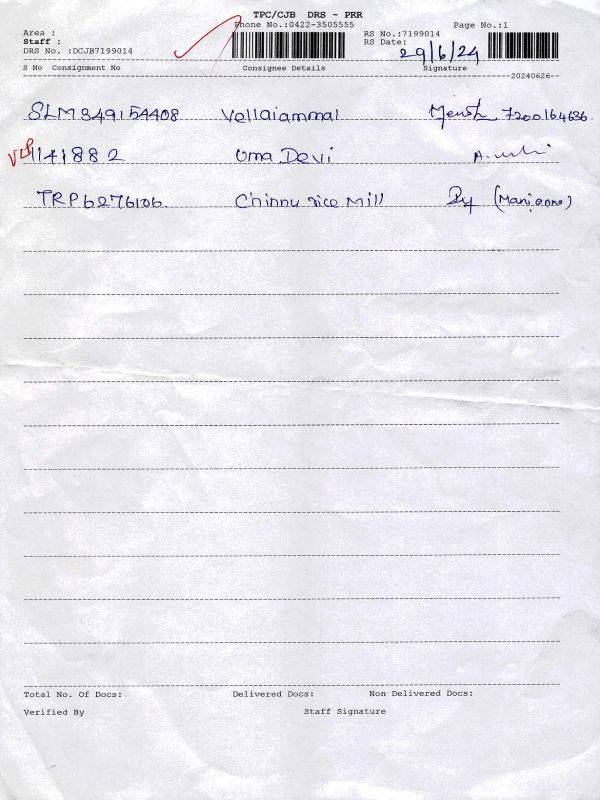 TPC/CJB DRS - PRR
Phone No.:0422-3505555 Page No.:1
Area : RS No.:7199014
Staff : RS Date: 29/6/24
DRS No. :DCJB7199014
S No Consignment No Consignee Details Signature
20240626
SLM849154408 Vellaiammal 7200164636
1141882 Uma Devi
TRP6276106 Chinnu rice Mill
Total No. Of Docs: Delivered Docs: Non Delivered Docs:
Verified By Staff Signature